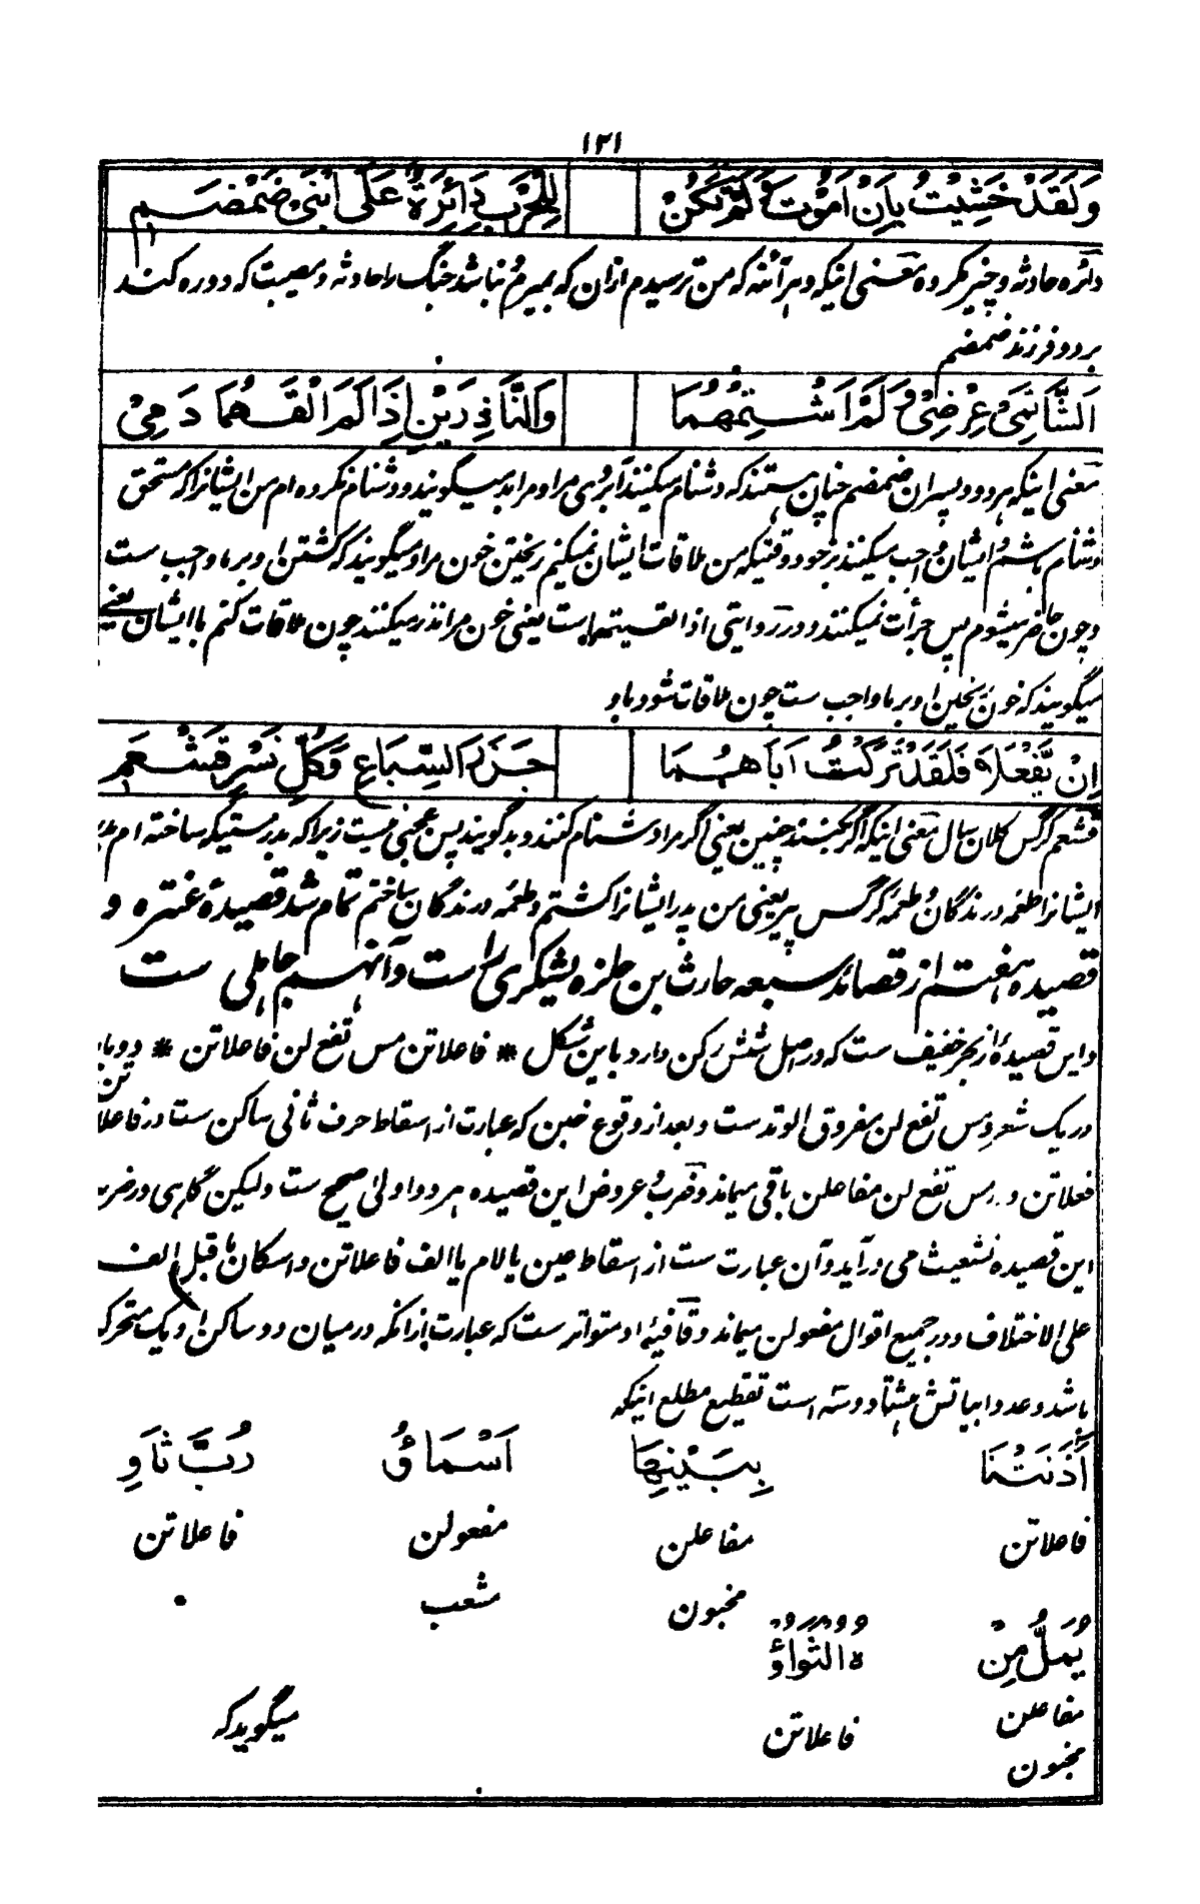 ۱۲۱
وَلَقَدْ خَشِيْتُ بِاَنْ اَمُوْتَ وَلَمْ تَكُنْ لِلْحَرْبِ دَائِرَةٌ عَلَى ابْنَىْ ضَمْضَمِ
دائره حادثه و چیز مکروه معنی اینکه و هر آئنه که من ترسیدم ازان که بمیرم و نباشد جنگ را حادثه و مصیبت که دوره کند
بر دو فرزند ضمضم
اَلشَّاتِمَىْ عِرْضِىْ وَلَمْ اَشْتِمْهُمَا وَالنَّاذِرَيْنِ اِذَا لَمَ الْقَهُمَا دَمِىْ
معنی اینکه هر دو پسران ضمضم چنان هستند که دشنام میکنند آبروی مرا و مرا بد میگویند و دشنام نکرده ام من ایشانرا که مستحق
دشنام باشم و ایشان واجب میکنند بر خود وقتیکه من ملاقات ایشان نمیکنم ریختن خون مرا و میگویند که کشتن او بر ما واجب ست
و چون حاضر میشوم پس جرأت نمیکنند و در روایتی اذا لقیتهما است یعنی خون مرا نذر میکنند چون ملاقات کنم با ایشان یعنی
میگویند که خون ریختن او بر ما واجب ست چون ملاقات شود باو
اِنْ يَّفْعَلَا فَلَقَدْ تَرَكْتُ اَبَاهُمَا جَزَرَ السِّبَاعِ وَكُلِّ نَسْرٍ قَشْعَمِ
قشعم کرگس کلان سال معنی اینکه اگر بکنند چنین یعنی اگر مرا دشنام کنند و بد گویند پس عجبی نیست زیرا که بدرستیکه ساخته ام پدر
ایشانرا طعمه درندگان و طعمه کرگس پیر یعنی من پدر ایشانرا کشتم و طعمه درندگان ساختم تمام شد قصیدهٔ عنتره و
قصیده هفتم از قصائد سبعه حارث بن حلزه یشکری راست و آنهم جاهلی ست
و این قصیدهٔ از بحر خفیف ست که در اصل شش رکن دارد باین شکل * فاعلاتن مس تفع لن فاعلاتن * دوبار
در یک شعر و مس تفع لن مفروق الوتد ست و بعد از وقوع خبن که عبارت از اسقاط حرف ثانی ساکن ست در فاعلاتن
فعلاتن و در مس تفع لن مفاعلن باقی میماند و ضرب و عروض این قصیده هر دو اولی صحیح ست ولیکن گاهی در ضرب
این قصیده تشعیث می درآید و آن عبارت ست از اسقاط عین یا لام یا الف فاعلاتن و اسکان ما قبل الف
علی الاختلاف و در جمیع اقوال مفعولن میماند و قافیهٔ او متواتر ست که عبارت ازانکه درمیان دو ساکن او یک متحرک
باشد و عدد ابیاتش هشتاد و سه است تقطیع مطلع اینکه
آذَنَتْنَا بِبَيْنِهَا اَسْمَاءُ رُبَّ ثَاوٍ
فاعلاتن مفاعلن مفعولن فاعلاتن
مخبون مشعث
يُمَلُّ مِنْ هُ الثَّوَاءُ
مفاعلن فاعلاتن میگوید که
مخبون